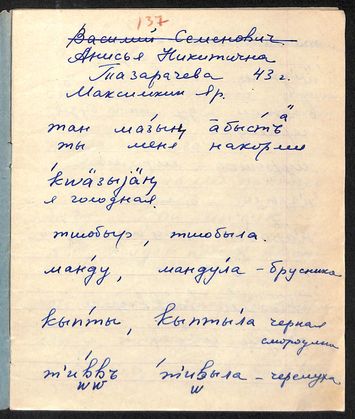 137
Василий Семенович.
Анисья Никитична
Тазарачева 43 г.
Максимкин Яр.
тан мазың
ты меня накорми
я голодная.
тшобыр, тшобыла.
манду, мандула – брусника
кыпты, кыптыла черная
смородина
– черемуха